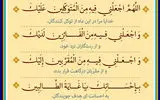 اللّهُمَّ اجْعَلْنی فیهِ مِنَ الْمُتَوَکِّلینَ عَلَیْکَ
خدایا مرا در این ماه از توکل کنندگان،
وَ اجْعَلْنی فیهِ مِنَ الْفائِزینَ لَدَیْکَ
و از رستگاران نزد خود،
وَ اجْعَلْنی فیهِ مِنَ الْمُقَرَّبینَ اِلَیْکَ
و از مقربان درگاهت قرار بده،
بِاِحْسانِکَ یا غایَةَ الطّالِبینَ
به احسانت ای هدف جویندگان.